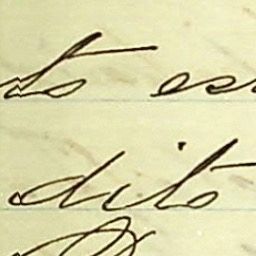 to es
dito